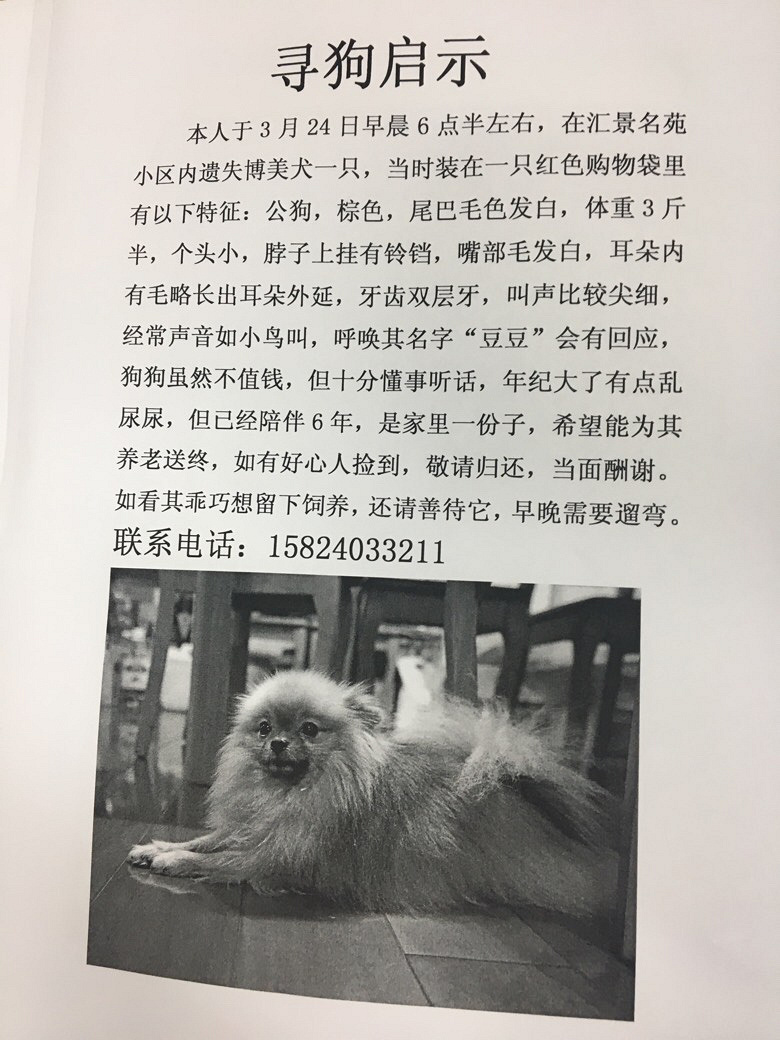 寻狗启示
本人于3月24日早晨6点半左右，在汇景名苑
小区内遗失博美犬一只，当时装在一只红色购物袋里
有以下特征：公狗，棕色，尾巴毛色发白，体重3斤
半，个头小，脖子上挂有铃铛，嘴部毛发白，耳朵内
有毛略长出耳朵外延，牙齿双层牙，叫声比较尖细，
经常声音如小鸟叫，呼唤其名字“豆豆”会有回应，
狗狗虽然不值钱，但十分懂事听话，年纪大了有点乱
尿尿，但已经陪伴6年，是家里一份子，希望能为其
养老送终，如有好心人捡到，敬请归还，当面酬谢。
如看其乖巧想留下饲养，还请善待它，早晚需要遛弯。
联系电话：15824033211